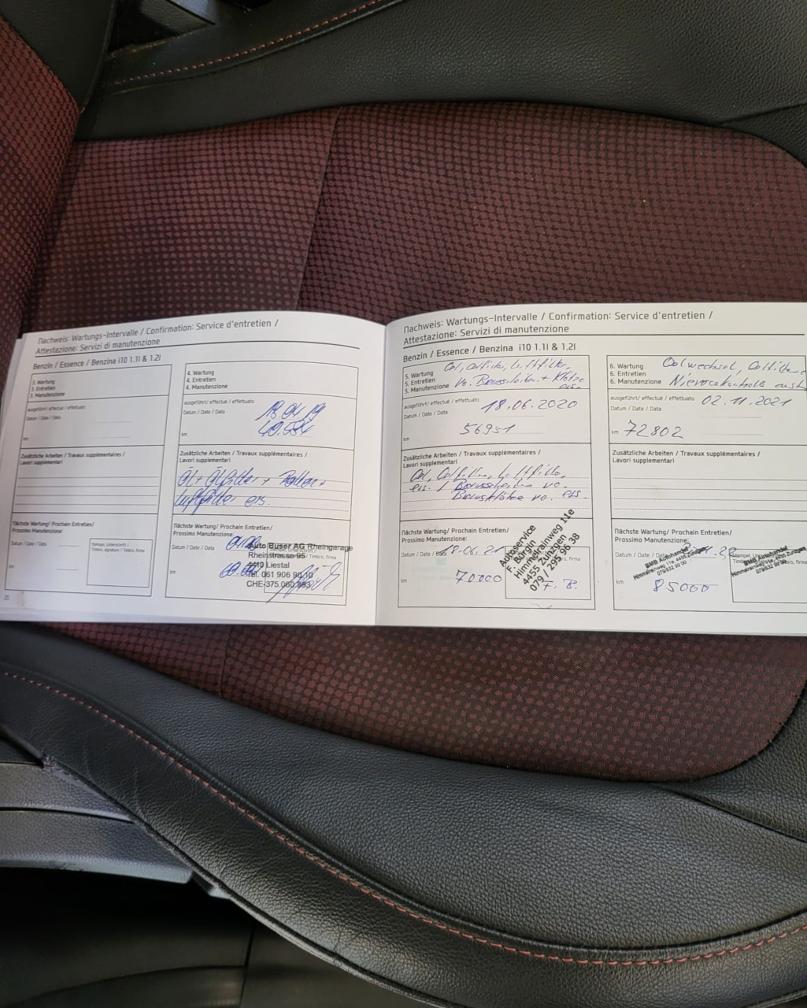 Nachweis: Wartungs-Intervalle / Confirmation: Service d'entretien /
Attestazione: Servizi di manutenzione
Benzin / Essence / Benzina i10 1.1l & 1.2l
3. Wartung
3. Entretien
3. Manutenzione
ausgeführt / effectué / effettuato
Datum / Date / Data
km
Zusätzliche Arbeiten / Travaux supplémentaires /
Lavori supplementari
Nächste Wartung/ Prochain Entretien/
Prossimo Manutenzione:
Datum / Date / Data
km
4. Wartung
4. Entretien
4. Manutenzione
ausgeführt / effectué / effettuato
Datum / Date / Data
km
Zusätzliche Arbeiten / Travaux supplémentaires /
Lavori supplementari
Öl + Ölfilter +
Luftfilter ers.
Nächste Wartung/ Prochain Entretien/
Prossimo Manutenzione:
Datum / Date / Data
km
Auto Buser AG Rheingarage
Rheinstrasse 95
4410 Liestal
Tel. 061 906
CHE-375.060
Nachweis: Wartungs-Intervalle / Confirmation: Service d'entretien /
Attestazione: Servizi di manutenzione
Benzin / Essence / Benzina i10 1.1l & 1.2l
5. Wartung
5. Entretien
5. Manutenzione
ausgeführt / effectué / effettuato
Datum / Date / Data 18.06.2020
km 56951
Zusätzliche Arbeiten / Travaux supplémentaires /
Lavori supplementari
Nächste Wartung/ Prochain Entretien/
Prossimo Manutenzione:
Datum / Date / Data 18.06.21
km 70000
Autoservice
F. Bürgin
Himmelrainweg 11e
4455 Zunzgen
079 / 295 96 38
F. B.
6. Wartung Oelwechsel,
6. Entretien
6. Manutenzione
ausgeführt / effectué / effettuato 02.11.2021
Datum / Date / Data
km 72802
Zusätzliche Arbeiten / Travaux supplémentaires /
Lavori supplementari
Nächste Wartung/ Prochain Entretien/
Prossimo Manutenzione:
Datum / Date / Data
km 85000